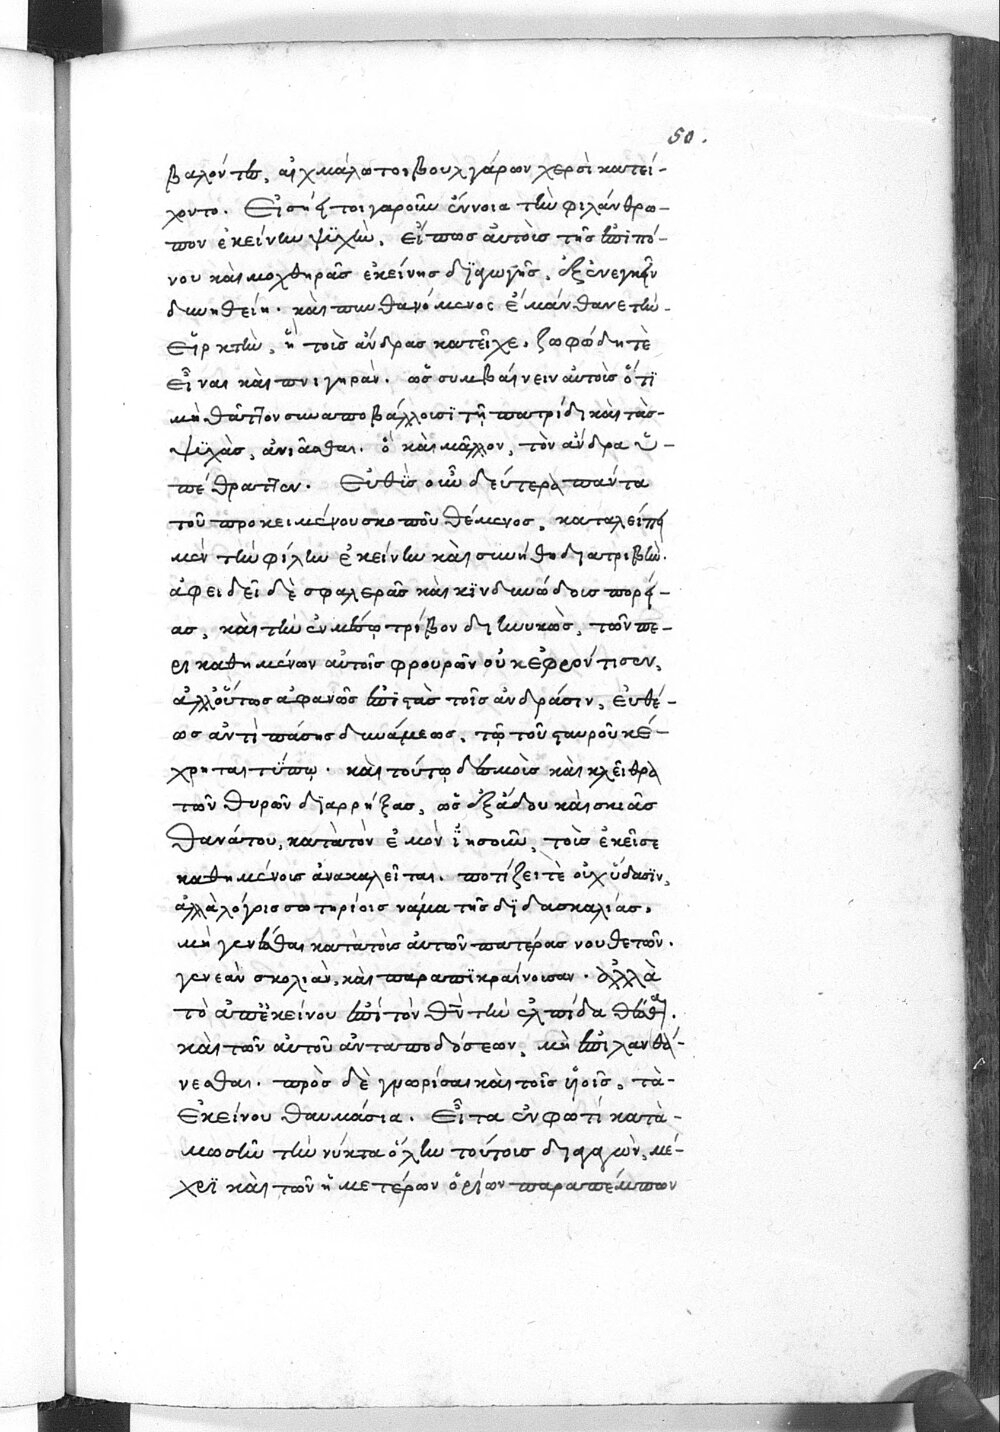 50.
βαλόντες, αἰχμάλωτοι βουλγάρων χερσὶ κατεί-
χοντο. Εἰσήει τοιγαροῦν ἔννοια τὴν φιλάνθρω-
πον ἐκείνην ψυχὴν, εἴπως αὐτοὺς τῆς ἐπιπό-
νου καὶ μοχθηρᾶς ἐκείνης διαγωγῆς, ἐξενεγκεῖν
δυνηθείη. καὶ πυνθανόμενος ἐμάνθανε τὴν
Εἱρκτὴν, ἣ τοὺς ἄνδρας κατεῖχε, ζωφώδη τὲ
εἶναι καὶ πνιγηρὰν. ὡς συμβαίνειν αὐτοῖς ὅτι
μὴ θᾶττον συναποβάλλοισι τῇ πατρίδι καὶ τὰς
ψυχὰς, ἀνιᾶσθαι. ὃ καὶ μᾶλλον, τὸν ἄνδρα ὑ-
πέθραττεν. Εὐθὺς οὖν δεύτερα πάντα
τοῦ προκειμένου σκοποῦ θέμενος, καταλείπει
μὲν τὴν φίλην ἐκείνην καὶ συνήθη διατριβὴν.
ἀφειδεῖ δὲ σφαλερᾶς καὶ κινδυνώδους πορεί-
ας, καὶ τὴν ἐν μέσῳ τρίβον διηνυκὼς, τῶν πε-
ρικαθημένων αὐτοῖς φρουρῶν οὐκ ἐφρόντισεν,
ἀλλ' οὕτως ἀφανῶς ἐπιστὰς τοῖς ἀνδράσιν, εὐθέ-
ως ἀντὶ πάσης δυνάμεως, τῷ τοῦ σταυροῦ κέ-
χρηται τύπῳ. καὶ τούτῳ δεσμοὺς καὶ κλεῖθρα
τῶν θυρῶν διαρρήξας, ὡς ἐξ ᾅδου καὶ σκιᾶς
θανάτου, κατὰ τὸν ἐμὸν ἰησοῦν, τοὺς ἐκεῖσε
καθημένους ἀνακαλεῖται. ποτίζει τὲ οὐχ ὕδασιν,
ἀλλὰ λόγοις σωτηρίοις νάμα τῆς διδασκαλίας,
μὴ γενέσθαι κατὰ τοὺς αὐτῶν πατέρας νουθετῶν.
γενεὰν σκολιὰν, καὶ παραπικραίνουσαν. ἀλλὰ
τὸ ἀπεκείνου ἐπὶ τὸν θν τὴν ἐλπίδα θέσθαι.
καὶ τῶν αὐτοῦ ἀνταποδόσεων, μὴ ἐπιλανθά-
νεσθαι. πρὸς δὲ γνωρίσαι καὶ τοῖς υἱοῖς, τὰ
Ἐκείνου θαυμάσια. Εἶτα ἐν φωτὶ κατὰ
μωσῆν τὴν νύκτα ὅλην τούτοις διαγαγὼν, μέ-
χρι καὶ τῶν ἡμετέρων ὁρίων παραπέμπων